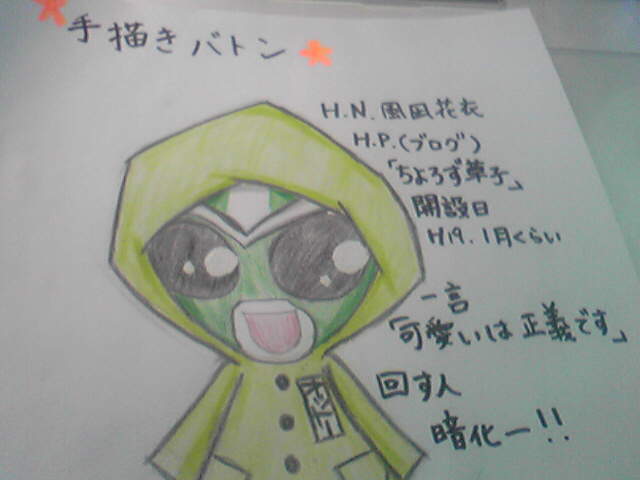 手描きバトン
H.N. 風凪花衣
H.P.(ブログ)
「ちよろず草子」
開設日
H19. 1月くらい
一言
「可愛いは正義です」
回す人
暗化ー!!